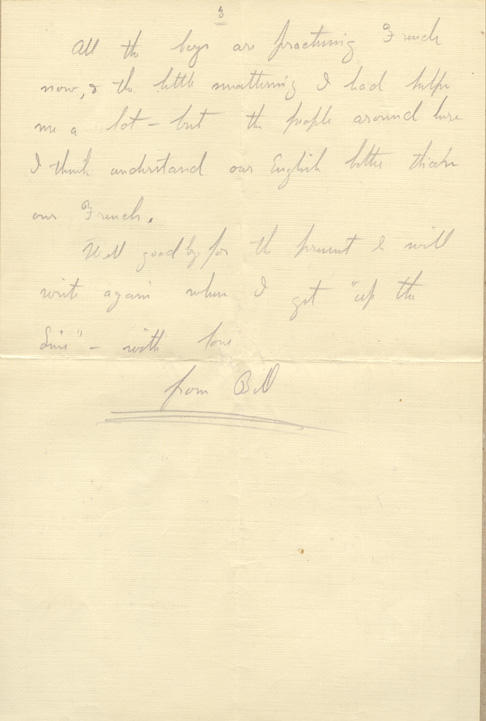 3
All the boys are practising French
now, & the little smattering I had helps
me a lot - but the people around here
I think understand our English better than
our French.
Well goodby for the present I will
write again when I get "up the
Line" - with love
from Bill